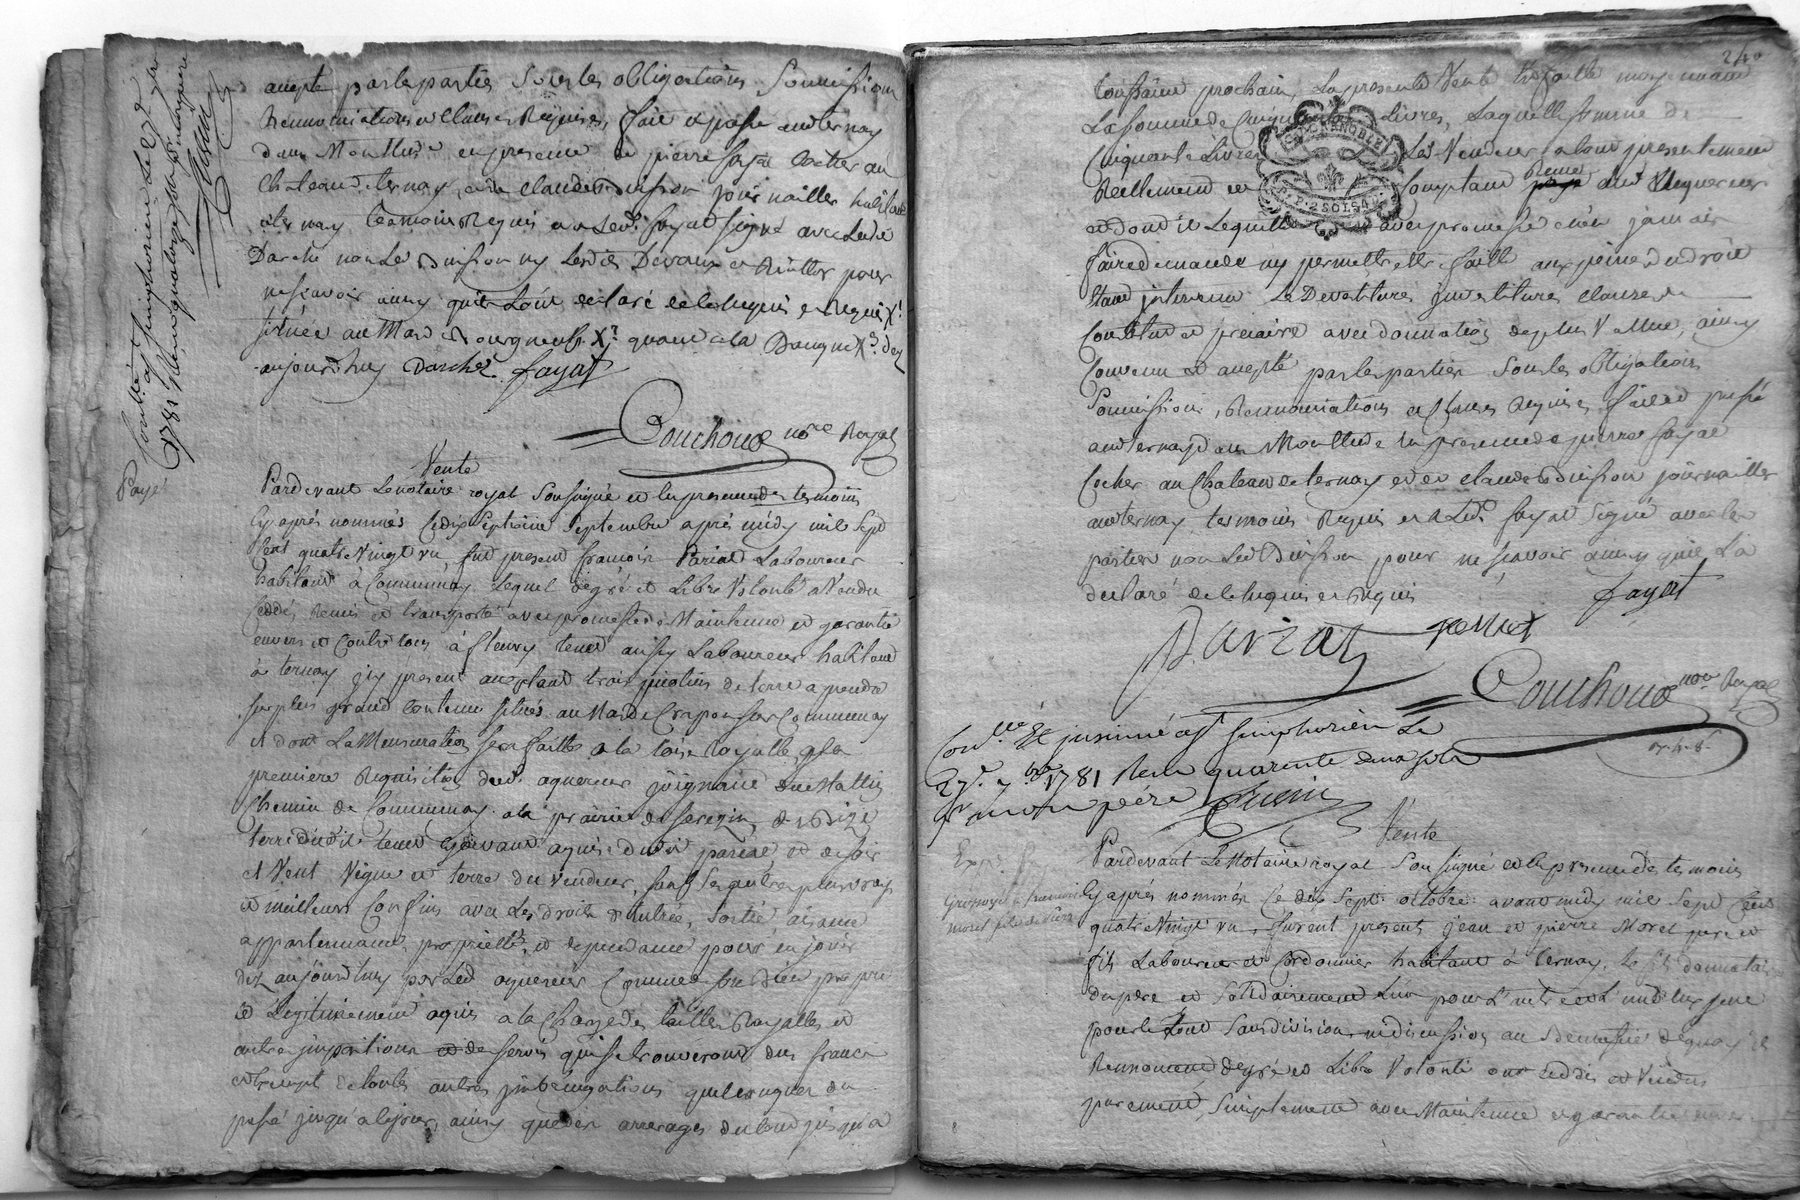 accepté par les parties sous les obligations soumissions
Renonciations et clauses Requises, fait et passé audt ternay
dans Mon Etude en presence de pierre fayat Cocher au
Chateau de ternay, et de claude Buisson journaillier habitant
a ternay temoins Requis et led. fayat signé avec ledit
Darché non le Buisson ny lesdits Devaux et pour
ne scavoir ainsy qu'ils l'ont declaré de ce enquis et Requis
située au Mas de quand a la
aujourd'huy Darché fayat
Couchoud nore Royal
Controllé a St simphorien le 27e 7bre
1781 Recu quatorze sols
Payé
Vente
Pardevant Le notaire royal soussigné et en presence des temoins
Cy après nommés Ce dix septieme septembre après midy mil sept
Cent quatre Vingt un fut present françois Pariat Laboureur
habitant à Communay lequel de gré et Libre Volonté a Vendu
Ceddé, Remis et transporté avec promesse de Maintenue et garantie
envers et Contre tous à fleury tenet aussy Laboureur habitant
à ternay icy present acceptant trois picotins de terre a prendre
sur plus grand Contenu situés au Mas de Craponsur Communay
et dont La Mensuration sera faitte a la toise Royalle, a sa
premiere Requisition dud. aquereur joignant du Mattin
Chemin de Communay a la prairie de serezin, de Bize
terre dudit tenet Cydevant aquise dudit pariat, et de soir
et Vent Vigne et terre du Vendeur, sauf ses autres plus vrays
et meilleurs Confins avec Les droits d'entrée, sortie aisance
appartenance, proprietté, et dependance pour en jouir
déz aujourdhuy par Led. aquereur Comme de son bien propre
et Légitimement aquis a la Charge des tailles Royalles et
autres impositions et de servis qui se trouveront dus franc
et exempt de toutes autres quelconques du
passé jusqu'a ce jour, ainsy que des arrerages du tout jusqu'a
240
toussaint prochain, La presente Vente Est faitte moyennant
La somme de Cinquante Livres, Laquelle somme de
Cinquante Livres Led. Vendeur a tout presentement
Reellement et Comptant Receue dud. aquereur
et dont il le quitte avec promesse de n'en jamais
faire demande ny permettre etre faitte aux peines de droit
tant intervenu Le Devetitures investitures clause de
Constitut et precaire avec donnation de plus Vallue, ainsy
Convenu et accepté par les parties sous les obligations
soumissions, Renonciations et clauses Requises, fait et passé
audt ternay dans Mon Etude en presence de pierre fayat
Cocher au Chateau de ternay et de claude Buisson journaillier
audt ternay temoins Requis et led. fayat signé avec les
parties non led. Buisson pour ne scavoir ainsy qu'il L'a
declaré de ce enquis et Requis fayat
Pariat tenet
Couchoud nore Royal
Conllé Et insinué a St simphorien Le
27e 7bre 1781 Recu quarente deux sols
pr mon pére
Vente
Pardevant Le Notaire royal soussigné et en presence des temoins
Cy après nommés Ce dix sept octobre avant midy mil sept Cent
quatre Vingt un, furent presents jean et pierre Moret pere et
fils Laboureur et Cordonnier habitant à ternay, Le fils donnataire
du pere et solidairement L'un pour L'autre et L'un d'eux seul
pour le tout sans division ny discussion au Benefice de quoy ils
Renoncent de gré et Libre Volonté ont Ceddés et Vendus
purement, simplement avec Maintenue et garantie envers